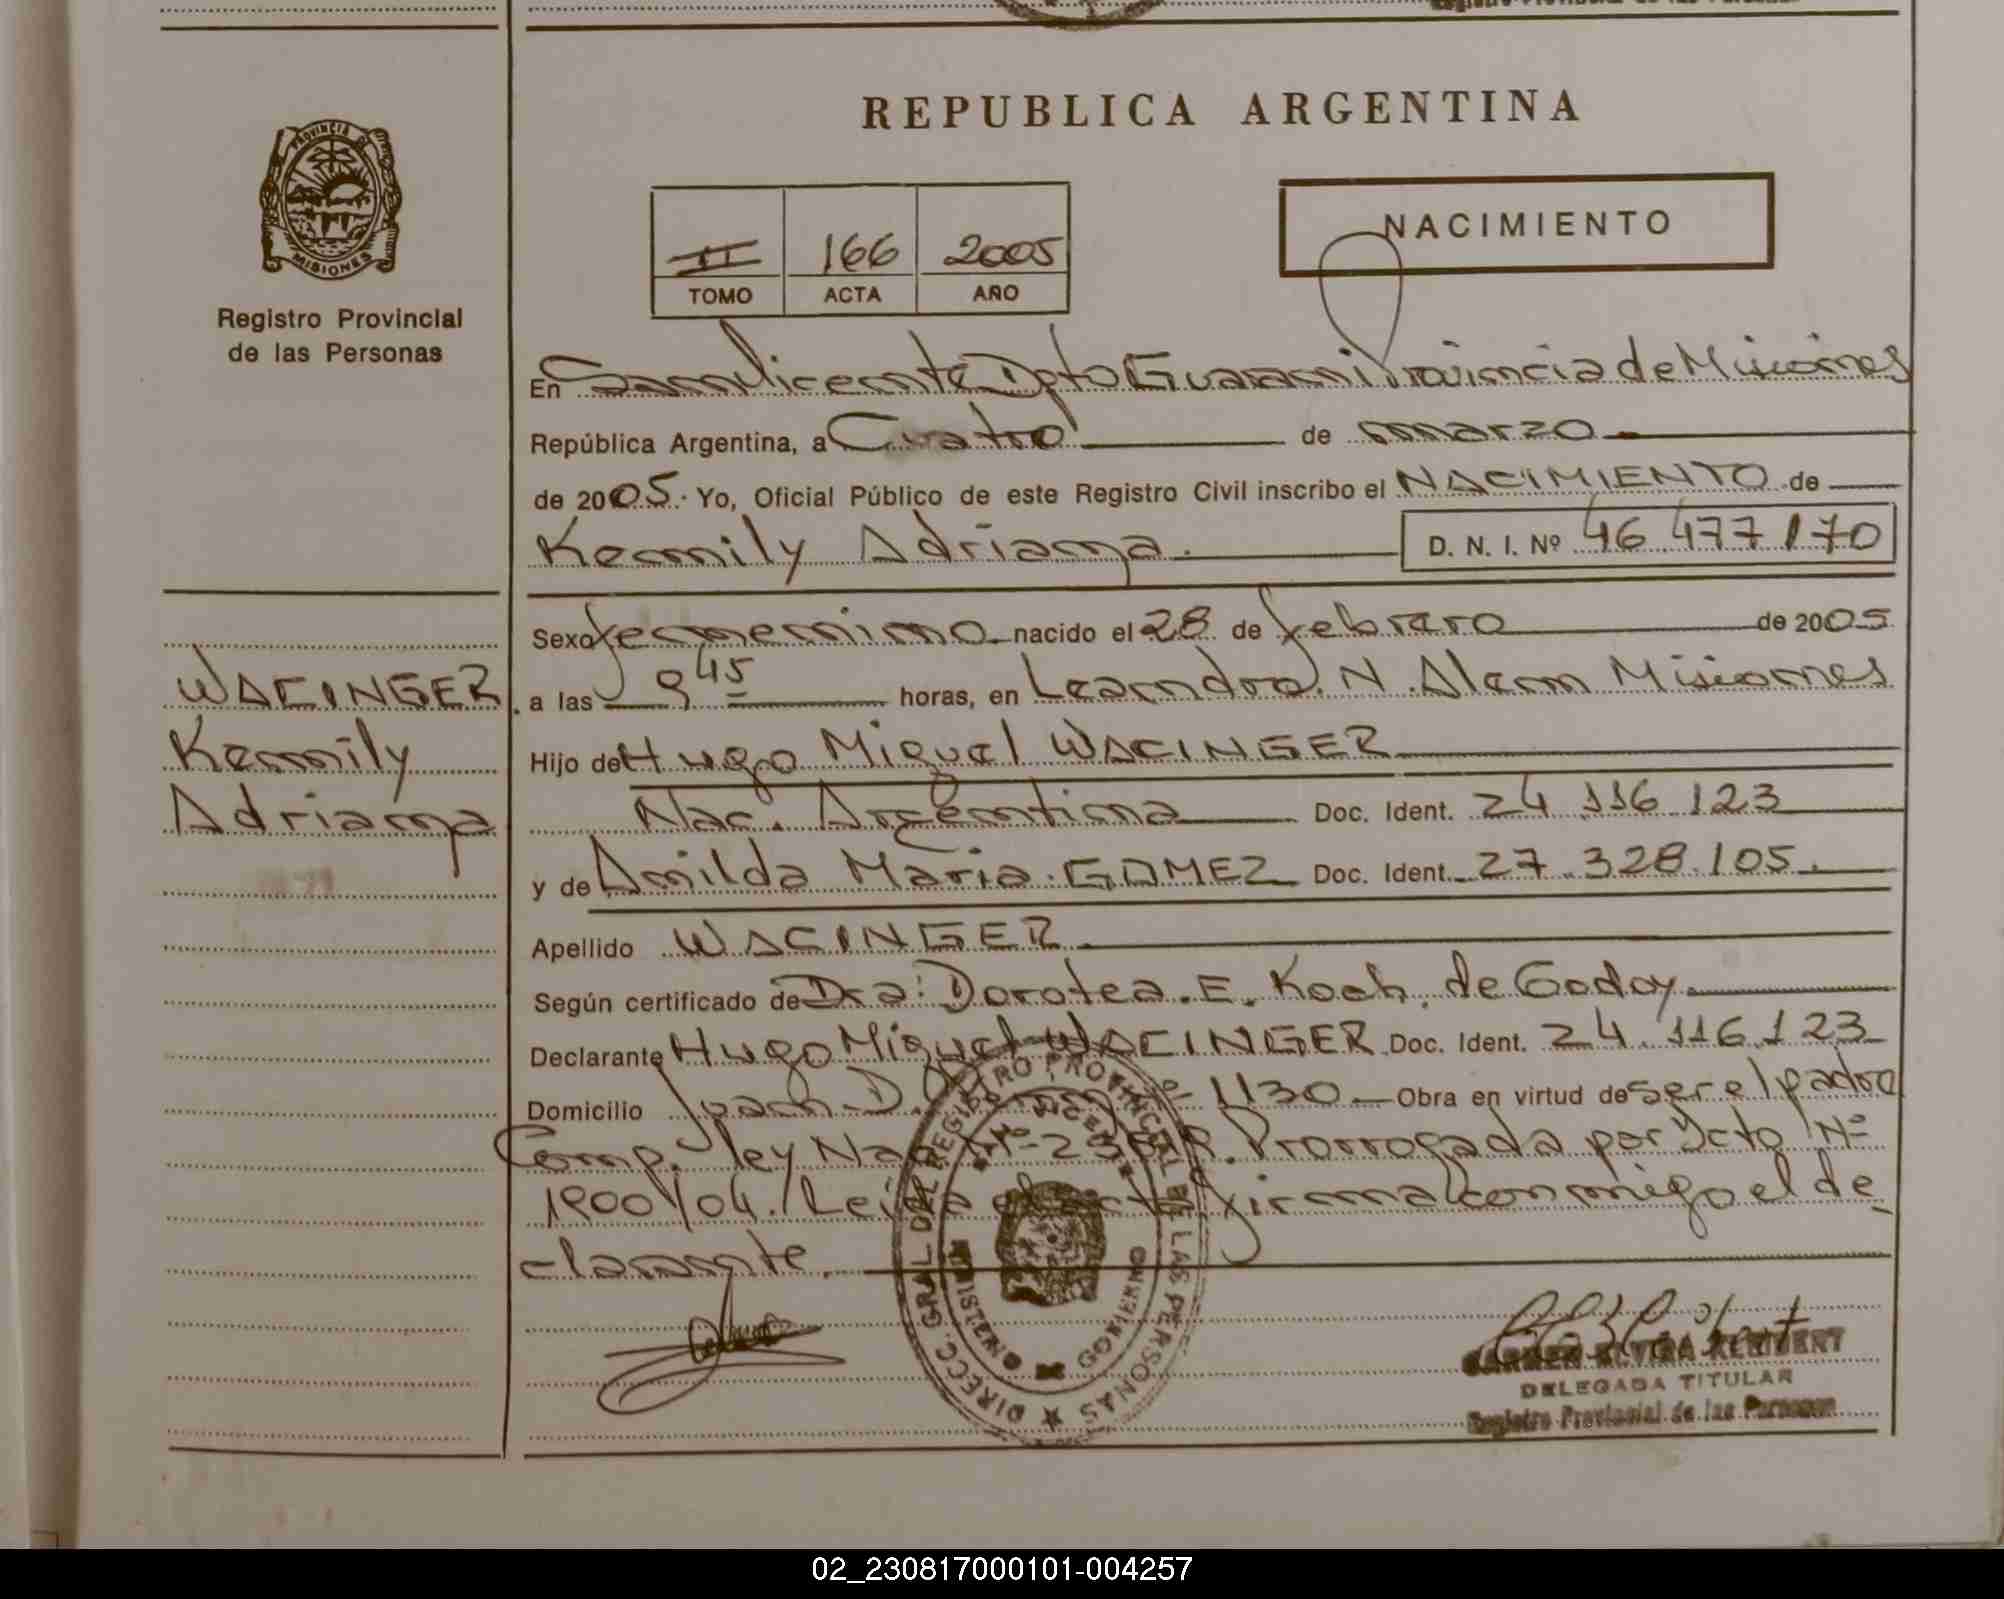 REPUBLICA ARGENTINA
PROVINCIA DE
MISIONES
Registro Provincial
de las Personas
NACIMIENTO
II 166 2005
TOMO ACTA AÑO
En San Vicente Dpto Guarani Provincia de Misiones
República Argentina, a Cuatro de marzo
de 2005. Yo, Oficial Público de este Registro Civil inscribo el NACIMIENTO de
Kemily Adriana. D. N. I. Nº 46 477 170
Sexo femenino nacido el 28 de febrero de 2005
a las 9 45 horas, en Leandro. N. Alem Misiones
WACINGER
Kemily
Adriana
Hijo de Hugo Miguel WACINGER
Nac. Argentina Doc. Ident. 24 116 123
y de Anilda Maria GOMEZ Doc. Ident. 27.328.105.
Apellido WACINGER.
Según certificado de Dra: Dorotea. E. Koch. de Godoy.
Declarante Hugo Miguel WACINGER Doc. Ident. 24.116.123
Domicilio Juan D. Nº 1130 Obra en virtud de ser el padre
Comp. ley Nac Nº Prorrogada por Dcto Nº
1900/04. Leida el acta firma conmigo el de-
clarante.
DIRECC. GRAL DEL REGISTRO PROVINCIAL DE LAS PERSONAS
MINISTERIO GOBIERNO
DELEGADA TITULAR
Registro Provincial de las Personas
02_230817000101-004257